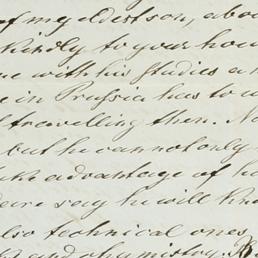 of my eldest son, abo
kindly to your hou
me with his studies a
e in Prussia has to u
l travelling then. No
but he cannot only
ake advantage of h
dare say he will kno
also technical ones
and chymistry.